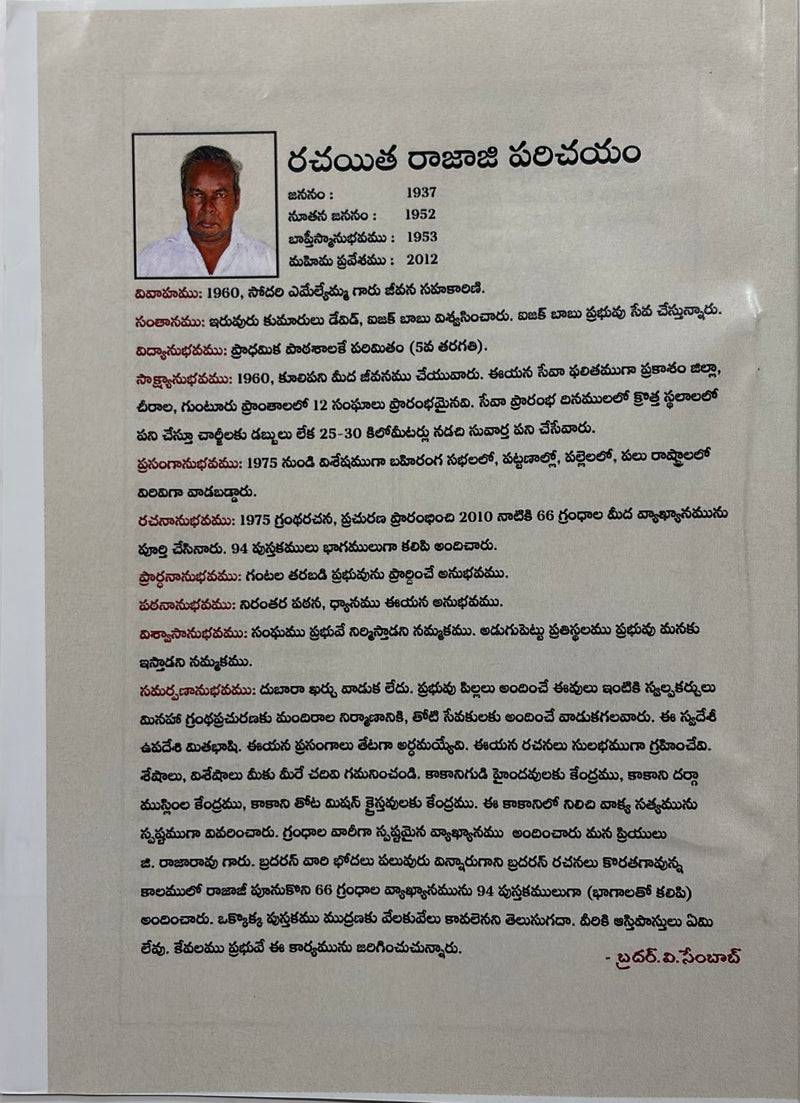 రచయిత రాజాజి పరిచయం
జననం : 1937
నూతన జననం : 1952
బాప్తీస్మానుభవము : 1953
మహిమ ప్రవేశము : 2012
వివాహము: 1960, సోదరి ఎమేల్యేమ్మ గారు జీవన సహకారిణి.
సంతానము: ఇరువురు కుమారులు డేవిడ్, ఐజక్ బాబు విశ్వసించారు. ఐజక్ బాబు ప్రభువు సేవ చేస్తున్నారు.
విద్యానుభవము: ప్రాధమిక పాఠశాలకే పరిమితం (5వ తరగతి).
సాక్ష్యానుభవము: 1960, కూలిపని మీద జీవనము చేయువారు. ఈయన సేవా ఫలితముగా ప్రకాశం జిల్లా,
చీరాల, గుంటూరు ప్రాంతాలలో 12 సంఘాలు ప్రారంభమైనవి. సేవా ప్రారంభ దినములలో క్రొత్త స్థలాలలో
పని చేస్తూ చార్జీలకు డబ్బులు లేక 25-30 కిలోమీటర్లు నడచి సువార్త పని చేసేవారు.
ప్రసంగానుభవము: 1975 నుండి విశేషముగా బహిరంగ సభలలో, పట్టణాల్లో, పల్లెలలో, పలు రాష్ట్రాలలో
విరివిగా వాడబడ్డారు.
రచనానుభవము: 1975 గ్రంథరచన, ప్రచురణ ప్రారంభించి 2010 నాటికి 66 గ్రంధాల మీద వ్యాఖ్యానమును
పూర్తి చేసినారు. 94 పుస్తకములు భాగములుగా కలిపి అందించారు.
ప్రార్ధనానుభవము: గంటల తరబడి ప్రభువును ప్రార్దించే అనుభవము.
పఠనానుభవము: నిరంతర పఠన, ధ్యానము ఈయన అనుభవము.
విశ్వాసానుభవము: సంఘము ప్రభువే నిర్మిస్తాడని నమ్మకము. అడుగుపెట్టు ప్రతిస్థలము ప్రభువు మనకు
ఇస్తాడని నమ్మకము.
సమర్పణానుభవము: దుబారా ఖర్చు వాడుక లేదు. ప్రభువు పిల్లలు అందించే ఈవులు ఇంటికి స్వల్పకర్చులు
మినహా గ్రంథప్రచురణకు మందిరాల నిర్మాణానికి, తోటి సేవకులకు అందించే వాడుకగలవారు. ఈ స్వదేశీ
ఉపదేశి మితభాషి. ఈయన ప్రసంగాలు తేటగా అర్ధమయ్యేవి. ఈయన రచనలు సులభముగా గ్రహించేవి.
శేషాలు, విశేషాలు మీకు మీరే చదివి గమనించండి. కాకానిగుడి హైందవులకు కేంద్రము, కాకాని దర్గా
ముస్లింల కేంద్రము, కాకాని తోట మిషన్ క్రైస్తవులకు కేంద్రము. ఈ కాకానిలో నిలిచి వాక్య సత్యమును
స్పష్టముగా వివరించారు. గ్రంధాల వారీగా స్పష్టమైన వ్యాఖ్యానము అందించారు మన ప్రియులు
జి. రాజారావు గారు. బ్రదరన్ వారి భోదలు పలువురు విన్నారుగాని బ్రదరన్ రచనలు కొరతగావున్న
కాలములో రాజాజీ పూనుకొని 66 గ్రంధాల వ్యాఖ్యానమును 94 పుస్తకములుగా (భాగాలతో కలిపి)
అందించారు. ఒక్కొక్క పుస్తకము ముద్రణకు వేలకువేలు కావలెనని తెలుసుగదా. వీరికి ఆస్తిపాస్తులు ఏమి
లేవు. కేవలము ప్రభువే ఈ కార్యమును జరిగించుచున్నారు.
- బ్రదర్. వి.సేంబాబ్